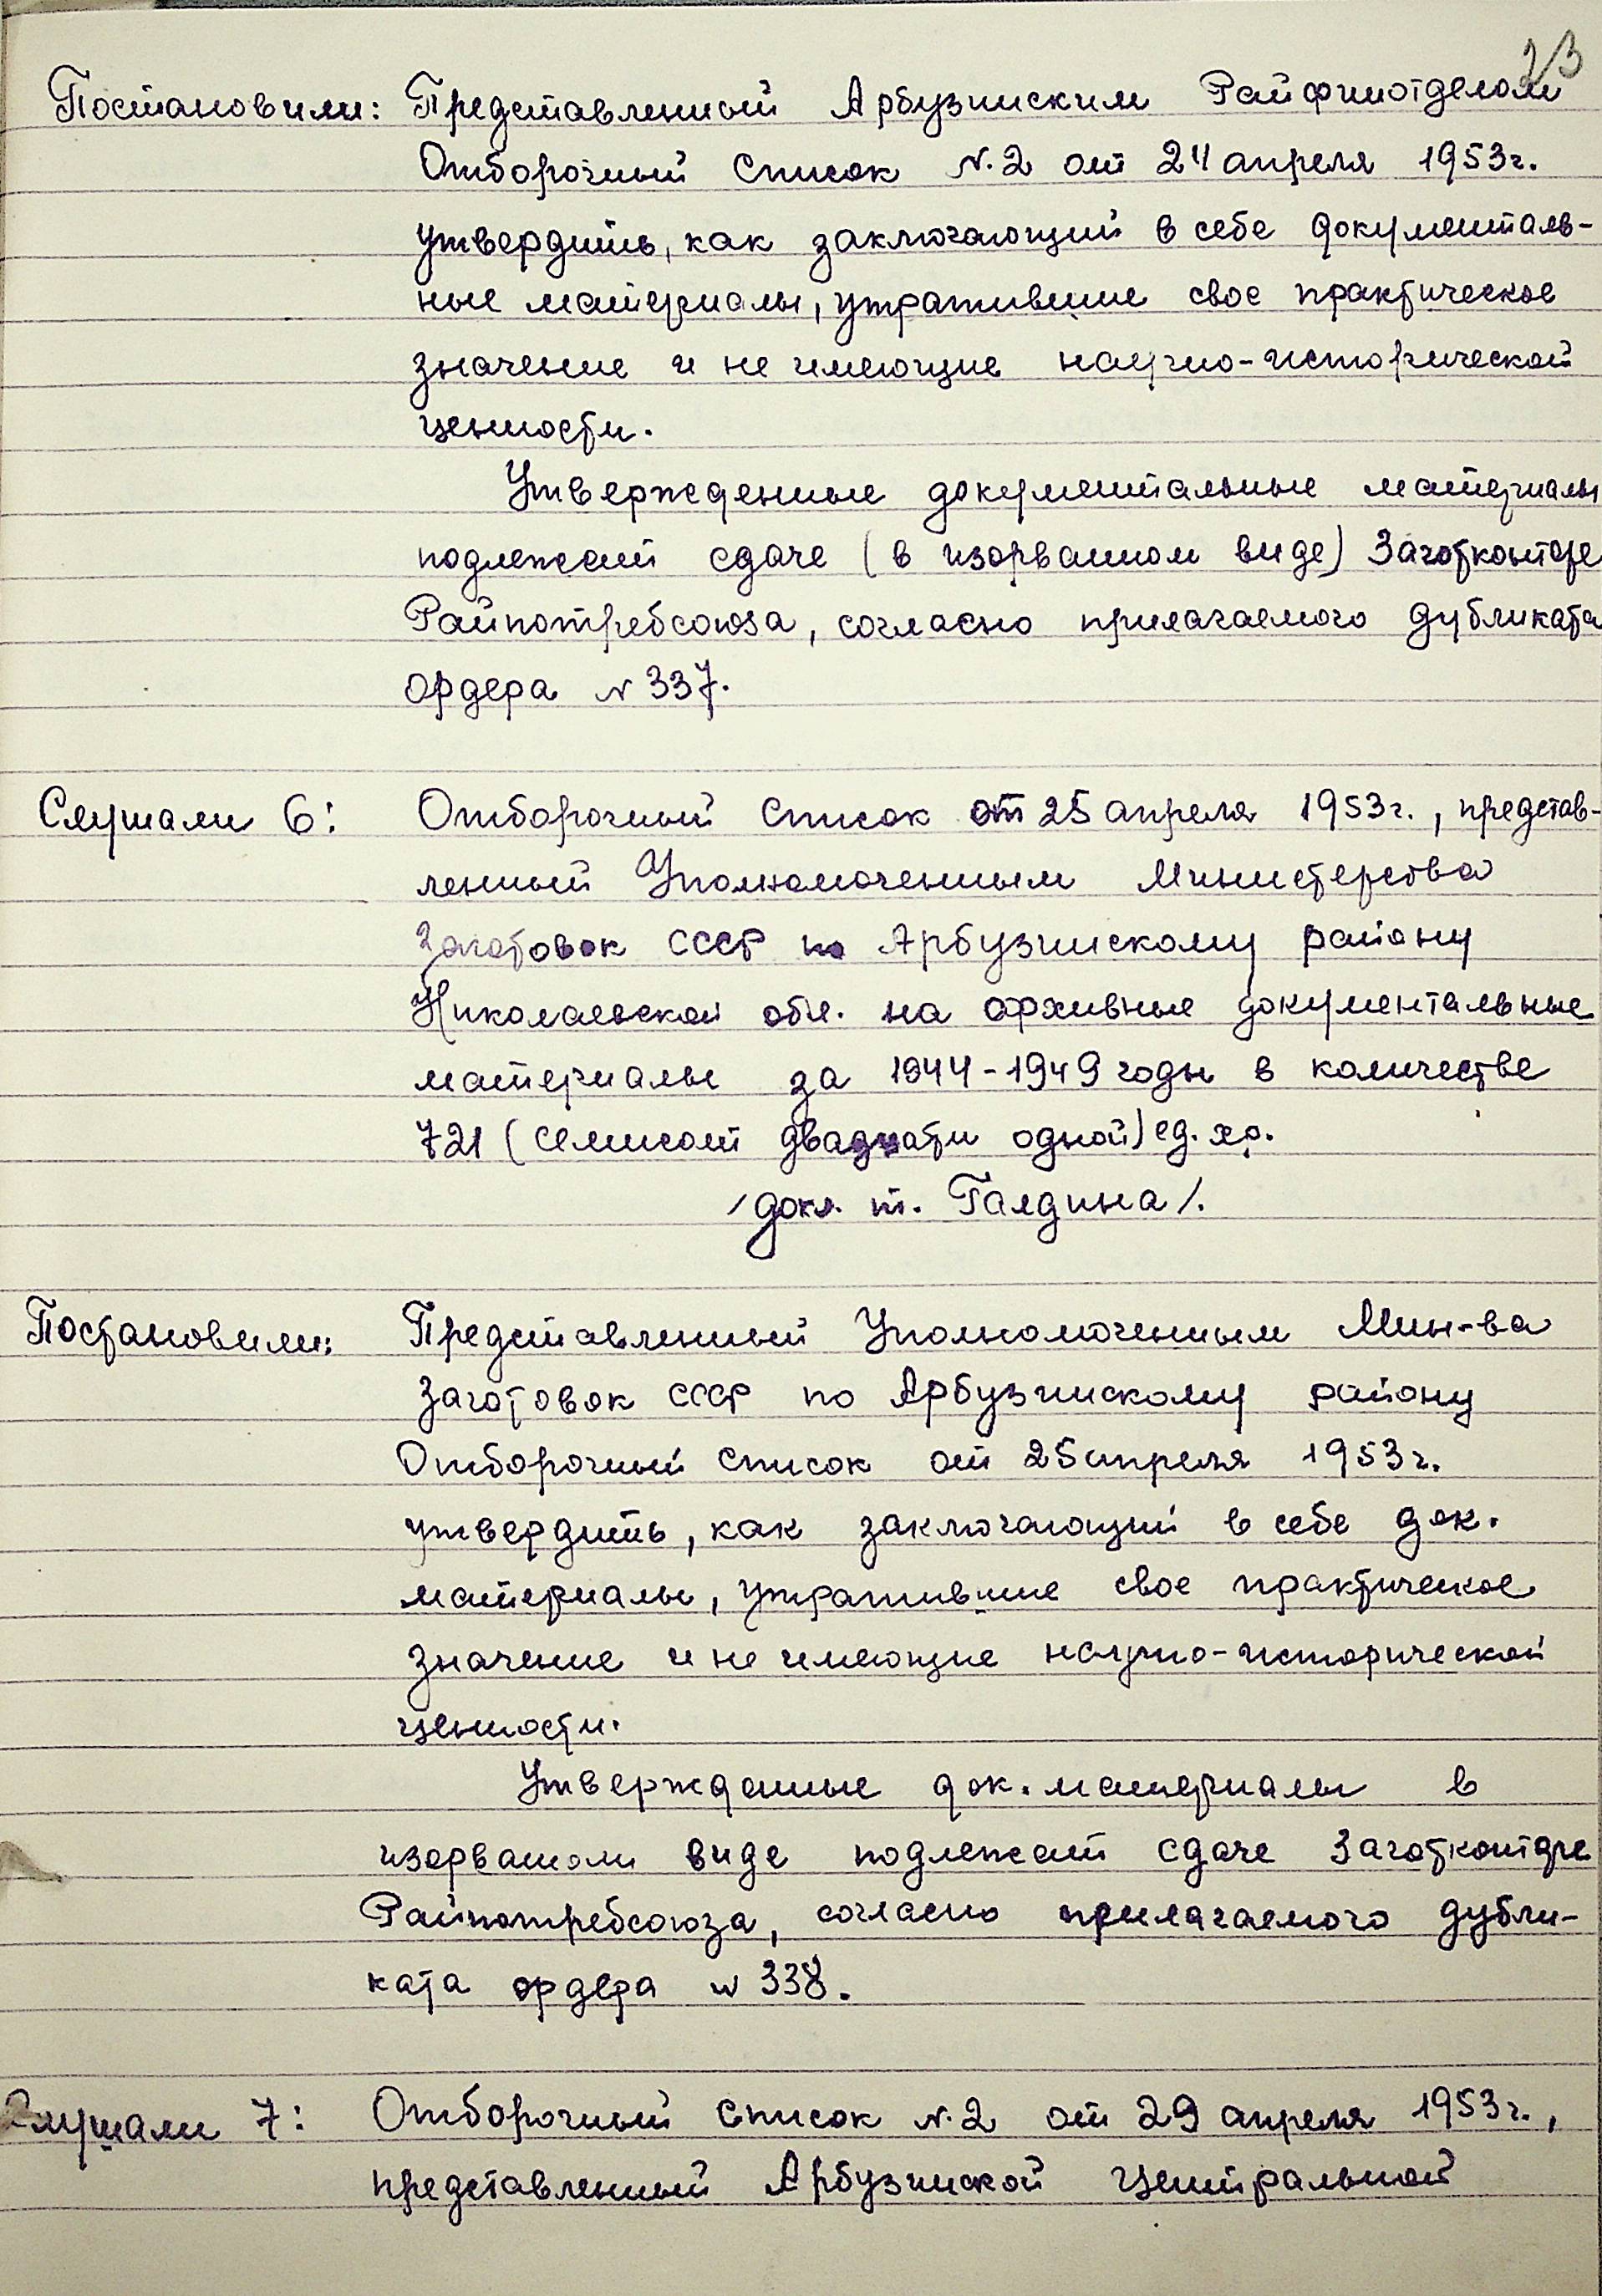 23
Постановили: Представленный Арбузинским Райфинотделом
Отборочный список N.2 от 24 апреля 1953г.
утвердить, как заключающий в себе документаль-
ные материалы, утратившие свое практическое
значение и не имеющие научно-исторической
ценности.
Утвержденные документальные материалы
подлежат сдаче (в изорванном виде) Заготконторе
Райпотребсоюза, согласно прилагаемого дубликата
ордера N 337.
Слушали 6: Отборочный список от 25 апреля 1953г., представ-
ленный Уполномоченным Министерства
Заготовок СССР по Арбузинскому району
Николаевской обл. на архивные документальные
материалы за 1944-1949 годы в количестве
721 (семисот двадцати одной) ед. хр.
/докл. т. Галдина/.
Постановили: Представленный Уполномоченным Мин-ва
Заготовок СССР по Арбузинскому району
Отборочный список от 25 апреля 1953г.
утвердить, как заключающий в себе док.
материалы, утратившие свое практическое
значение и не имеющие научно-исторической
ценности.
Утвержданные док. материалы в
изорванном виде подлежат сдаче Заготконторе
Райпотребсоюза, согласно прилагаемого дубли-
ката ордера N 338.
Слушали 7: Отборочный список N.2 от 29 апреля 1953г.,
представленный Арбузинской Центральной